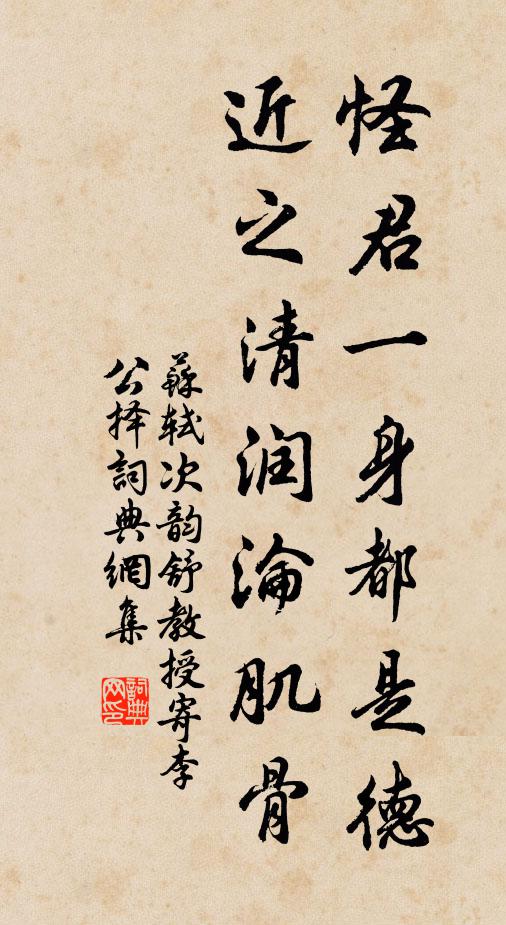 怪君一身都是德
近之清润淪肌骨
蘇轼次韵舒教授寄李
公择詞典網集
詞典
网印